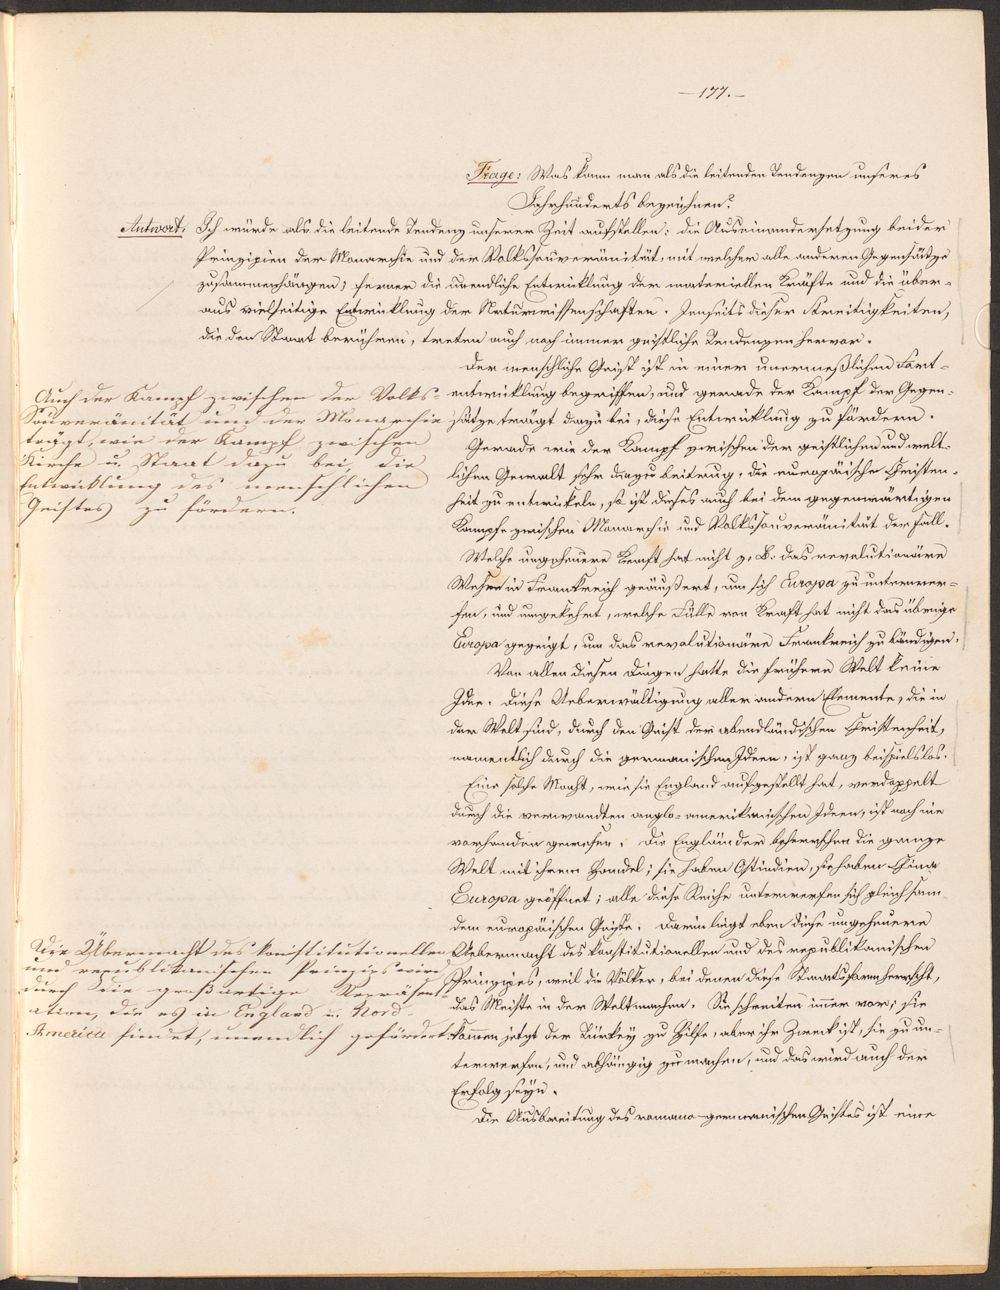 — 177. —
Frage: Was kann man als die leitenden Tendenzen unseres
Jahrhunderts bezeichnen?
Antwort: Ich würde als die leitende Tendenz unserer Zeit aufstellen: die Auseinandersetzung beider
Prinzipien der Monarchie und der Volkssouveränität, mit welcher alle anderen Gegensätze
zusammenhängen; ferner die unendliche Entwicklung der materiellen Kräfte und die über-
aus vielseitige Entwicklung der Naturwissenschaften. Jenseits dieser Streitigkeiten,
die den Staat berühren, treten auch noch immer geistliche Tendenzen hervor.
Der menschliche Geist ist in einer unermeßlichen Fort-
entwicklung begriffen, und gerade der Kampf der Gegen-
sätze trägt dazu bei, diese Entwicklung zu fördern.
Gerade wie der Kampf zwischen der geistlichen und welt-
lichen Gewalt sehr dazu beitrug, die europäische Christen-
heit zu entwickeln, so ist dieses auch bei dem gegenwärtigen
Kampfe zwischen Monarchie und Volkssouveränität der Fall.
Auch der Kampf zwischen der Volks-
Souveränität und der Monarchie
trägt, wie der Kampf zwischen
Kirche u. Staat dazu bei, die
Entwicklung des menschlichen
Geistes zu fördern.
Welche ungeheuere Kraft hat nicht z. B. das revolutionäre
Wesen in Frankreich geäußert, um sich Europa zu unterwer-
fen, und umgekehrt, welche Fülle von Kraft hat nicht das übrige
Europa gezeigt, um das revolutionäre Frankreich zu bändigen.
Von allen diesen Dingen hatte die frühere Welt keine
Idee. Diese Ueberwältigung aller andern Elemente, die in
der Welt sind, durch den Geist der abendländischen Christenheit,
namentlich durch die germanischen Ideen, ist ganz beispiellos.
Eine solche Macht, wie sie England aufgestellt hat, verdoppelt
durch die verwandten anglo-amerikanischen Ideen, ist noch nie
vorhanden gewesen. Die Engländer beherrschen die ganze
Welt mit ihrem Handel; sie haben Ostindien, sie haben China
Europa geöffnet; alle diese Reiche unterwerfen sich gleichsam
dem europäischen Geiste. Darin liegt eben diese ungeheuere
Uebermacht des konstitutionellen und des republikanischen
Prinzipes, weil die Völker, bei denen diese Staatsform herrscht,
das Meiste in der Welt machen. Sie schreiten immer vor; sie
kamen jetzt der Türkey zu Hilfe, aber ihr Zweck ist, sie zu un-
terwerfen, und abhängig zu machen, und das wird auch der
Erfolg seyn.
Die Übermacht des konstitutionellen
und republikanischen Prinzips wird
durch die großartige Repräsent-
ation, die es in England u. Nord-
America findet, unendlich gefördert.
Die Ausbreitung des romano-germanischen Geistes ist eine